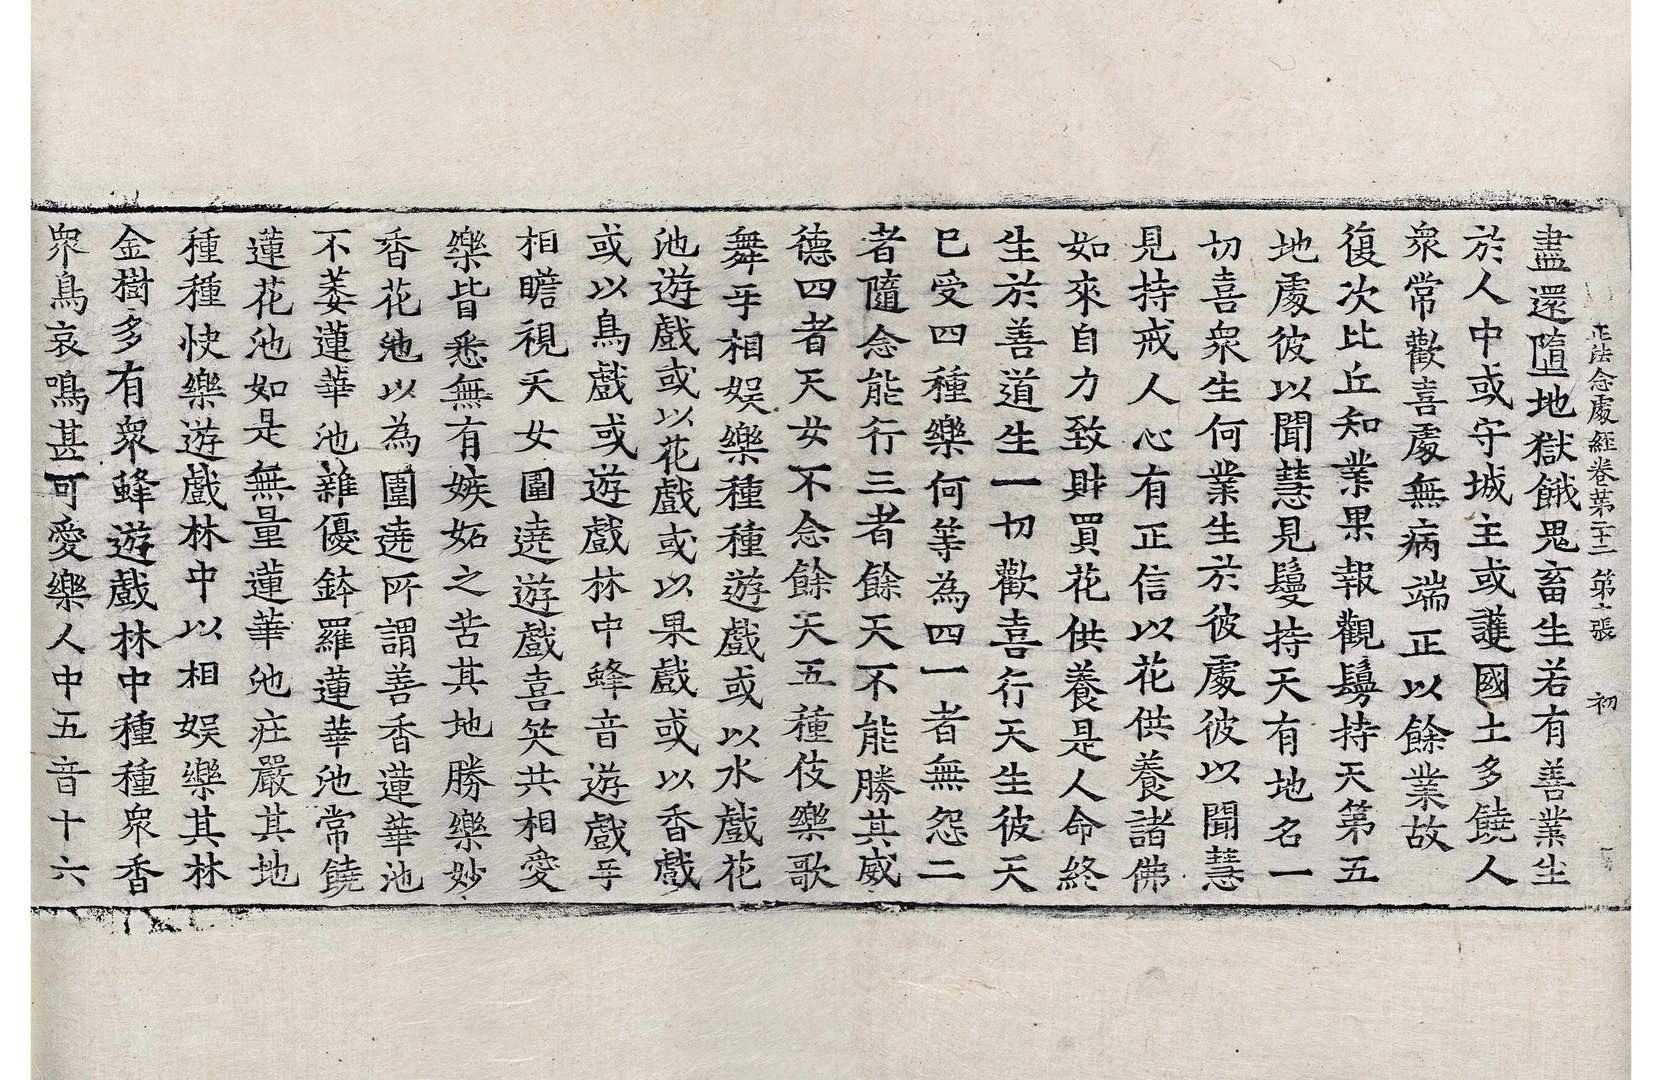 正法念處經卷第二十二 第六張 初
盡還隨地獄餓鬼畜生若有善業生
於人中或守城主或護國土多饒人
衆常歡喜處無病端正以餘業故
復次比丘知業果報觀鬘持天第五
地處彼以聞慧見鬘持天有地名一
切喜衆生何業生於彼處彼以聞慧
見持戒人心有正信以花供養諸佛
如來自力致財買花供養是人命終
生於善道生一切歡喜行天生彼天
已受四種樂何等為四一者無怨二
者隨念能行三者餘天不能勝其威
德四者天女不念餘天五種伎樂歌
舞乎相娛樂種種遊戲或以水戲花
池遊戲或以花戲或以果戲或以香戲
或以鳥戲或遊戲林中蜂音遊戲乎
相瞻視天女圍遶遊戲喜笑共相愛
樂皆悉無有嫉妬之苦其地勝樂妙
香花池以為圍遶所謂善香蓮華池
不萎蓮華池雜優鉢羅蓮華池常饒
蓮花池如是無量蓮華池莊嚴其地
種種快樂遊戲林中以相娛樂其林
金樹多有衆蜂遊戲林中種種衆香
衆鳥哀鳴甚可愛樂人中五音十六